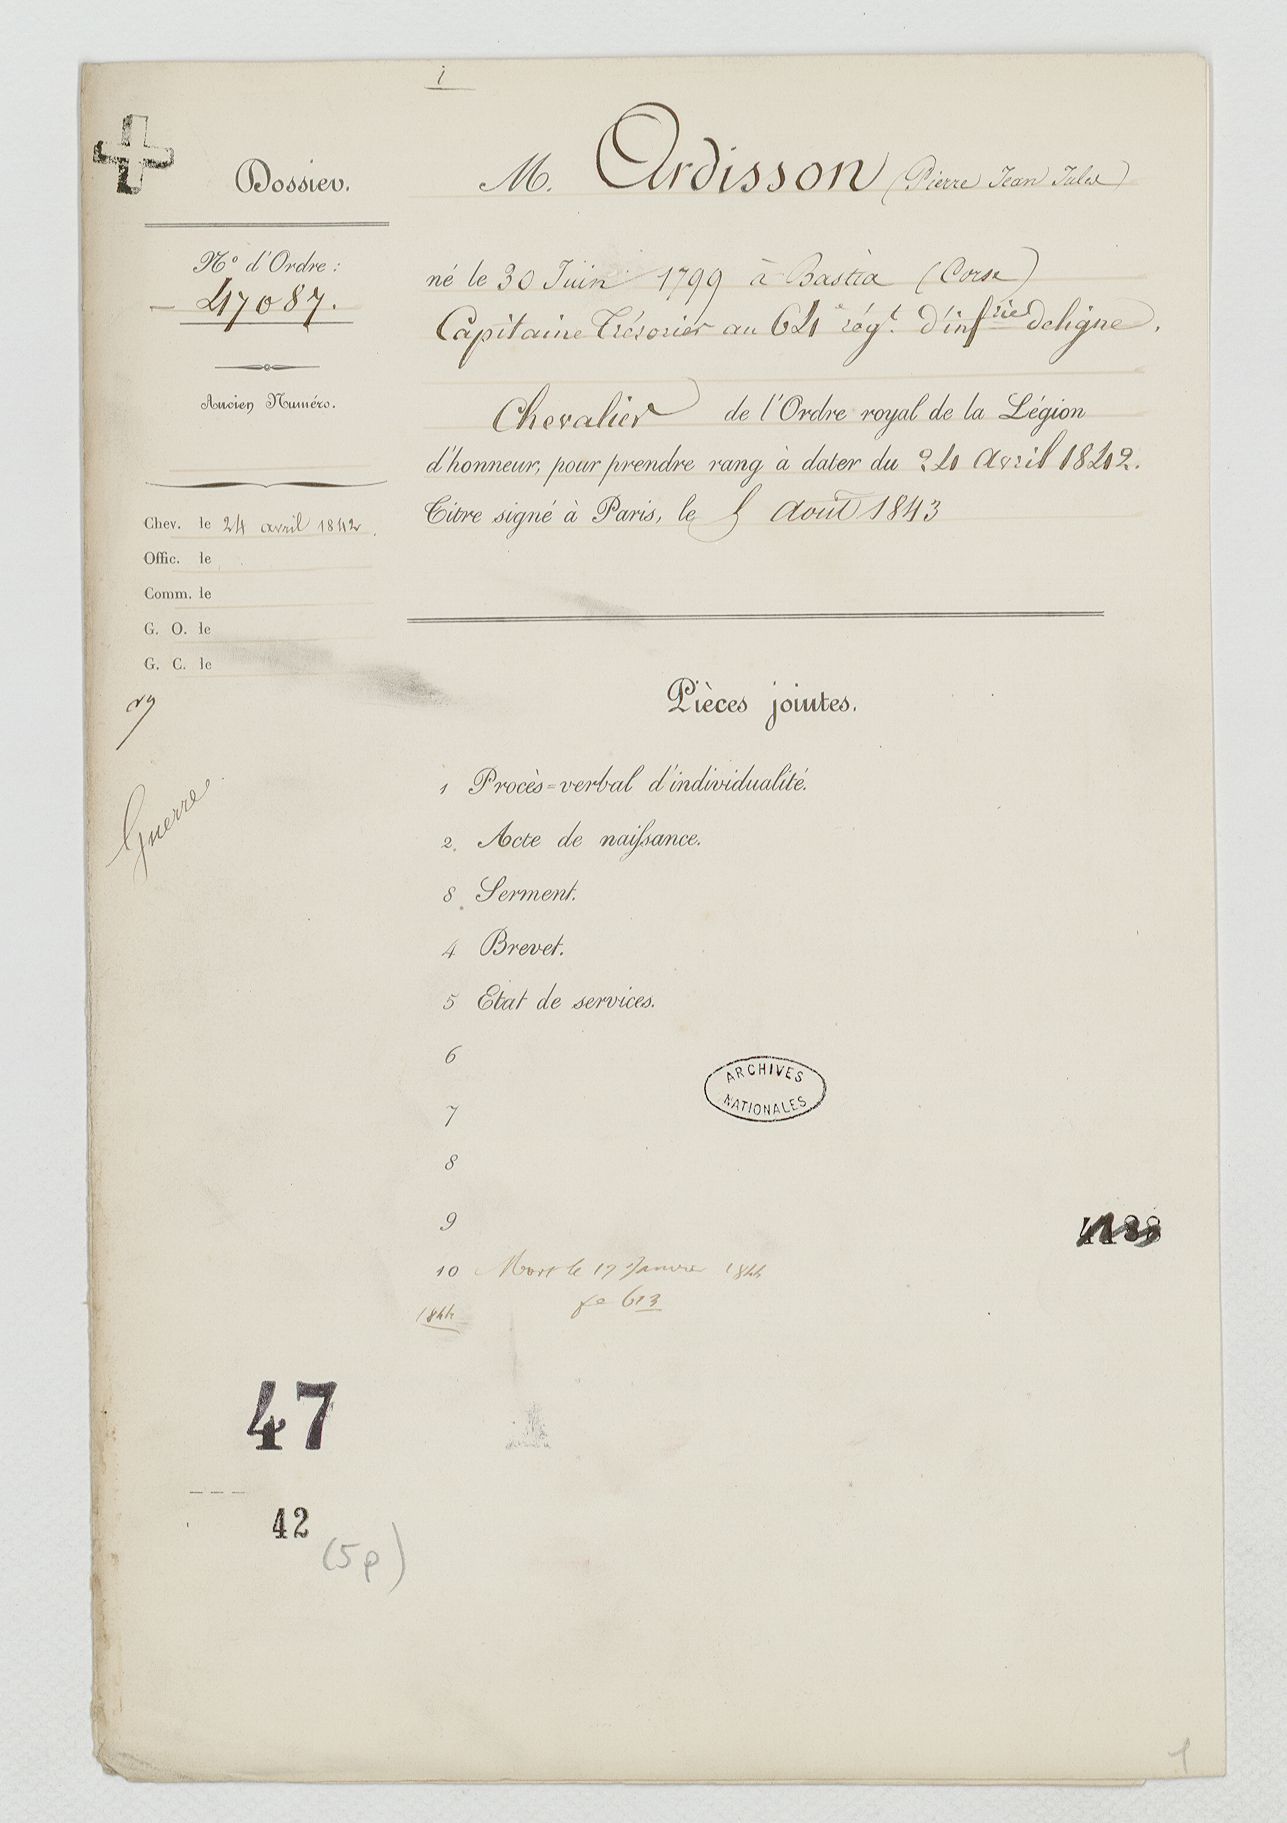 1
Dossier.
M. Ardisson (Pierre Jean Jules)
N.º d'Ordre :
47087.
Ancien Numéro.
né le 30 Juin 1799 à Bastia (Corse)
Capitaine Trésorier au 64e régt. d'infrie deligne.
Chevalier de l'Ordre royal de la Légion
d'honneur, pour prendre rang à dater du 24 avril 1842.
Titre signé à Paris, le 5 Aout 1843
Chev. le 24 avril 1842.
Offic. le
Comm. le
G. O. le
G. C. le
Guerre
Pièces jointes.
1 Procès=verbal d'individualité.
2. Acte de naiſsance.
3. Serment.
4 Brevet.
5 Etat de services.
6
7
8
9
10 Mort le 17 Janvier 1844
fo 613
1844
ARCHIVES
NATIONALES
47
42
(5p)
1